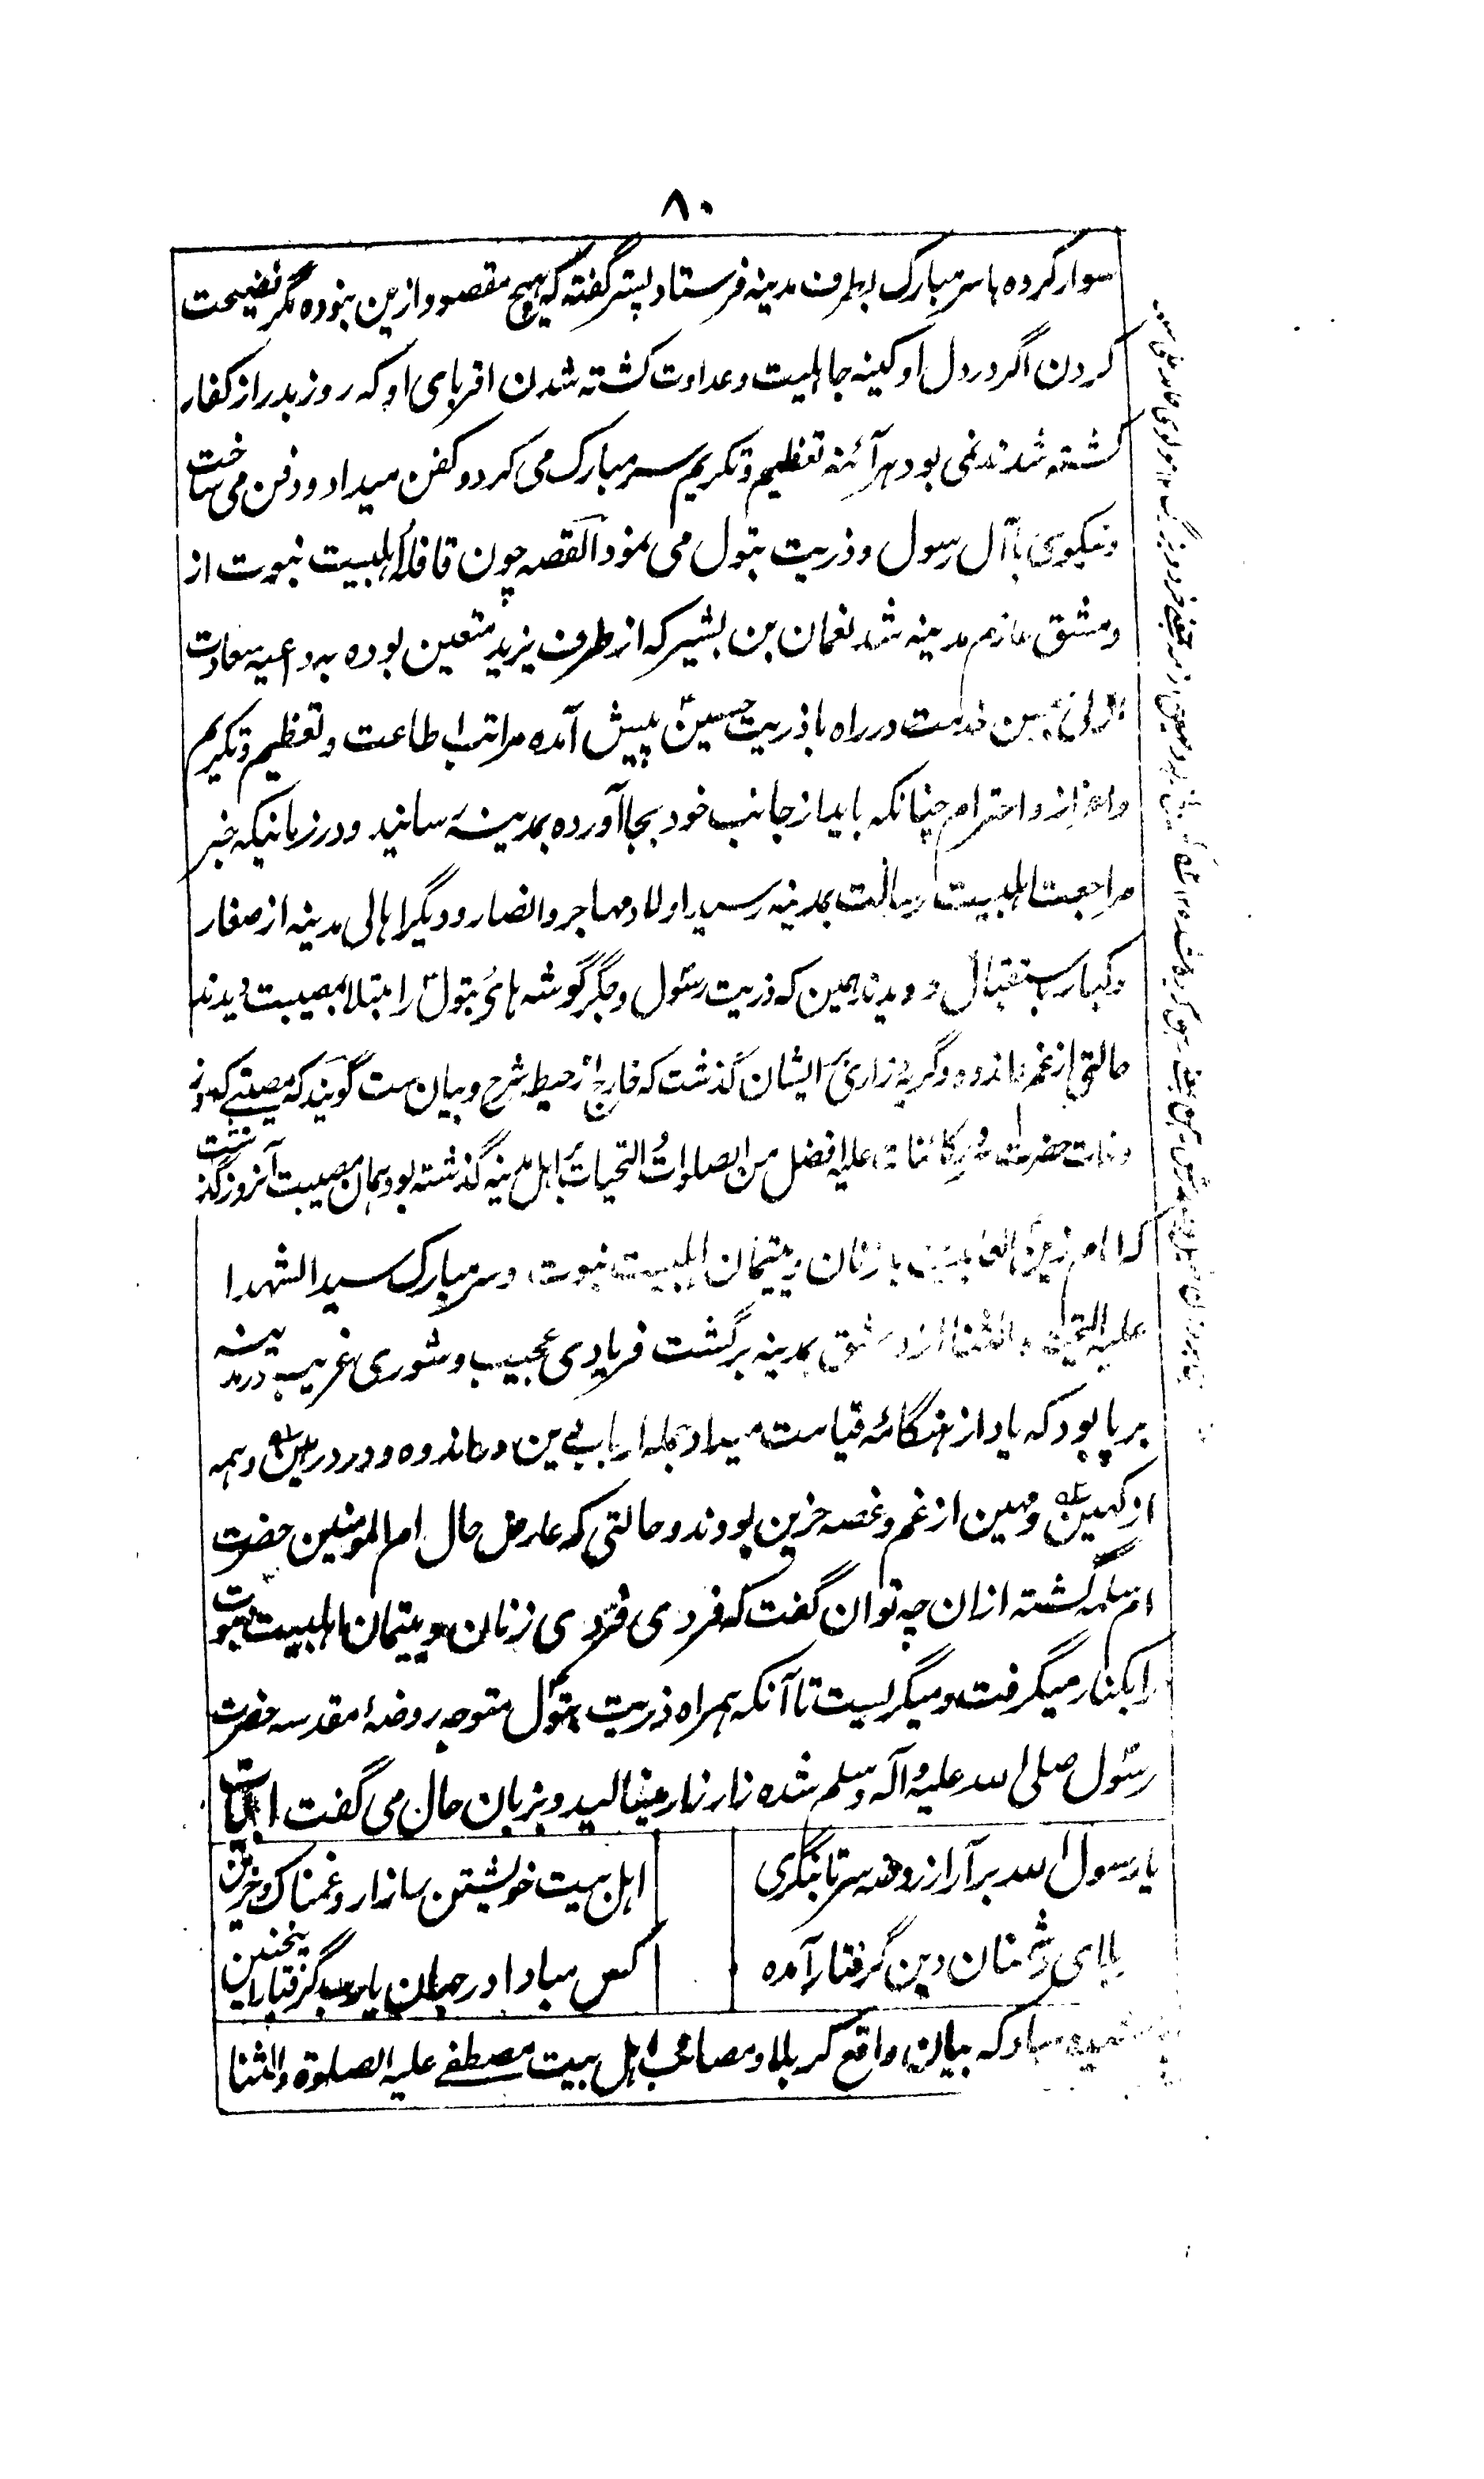 ۸۰
سوار کرده با سر مبارک بطرف مدینه فرستاد پستر گفته که هیچ مقصود ازین نبوده مگر فضیحت
کردن اگر در دل او کینه جاهلیت و عداوت کشته شدن اقربای او که روز بدر از کفار
کشته شدند نمی بود هر آئنه تعظیم و تکریم سر مبارک می کرد و کفن میداد و دفن می ساخت
و نیکوی با آل رسول و ذریت بتول می نمود القصه چون قافله اهلبیت نبوت از
دمشق عازم مدینه شد نعمان بن بشیر که از طرف یزید متعین بوده به داعیه سعادت
خدمت در راه با ذریت حسین پیش آمده مراتب اطاعت و تعظیم و تکریم
و اعزاز و احترام چنانکه باید از جانب خود بجا آورده بمدینه رسانید و در زمانیکه خبر
مراجعت اهلبیت رسالت بمدینه رسید اولاد مهاجر و انصار و دیگر اهالی مدینه از صغار
و کبار باستقبال دویدند همین که ذریت رسول و جگر گوشه های بتول را مبتلا بمصیبت دیدند
حالتی از غم و اندوه و گریه زاری بر ایشان گذشت که خارج از حیطه شرح و بیان ست گویند که مصیبتے که روز
وفات حضرت سرور کائنات علیه افضل من الصلوات و التحیات بر اهل مدینه گذشته بود همان مصیبت آنروز گذشت
که امام زین العابدین با زنان و یتیمان اهلبیت نبوت و سر مبارک سید الشهدا
علیه التحیة و الثنا از دمشق بمدینه برگشت فریادی عجیب و شوری غریب در مدینه
برپا بود که یاد از هنگامه قیامت میداد جمله ارباب دین در اندوه و درد و همه
از کهین و مهین از غم و غصه حزین بودند و حالتی که عارض حال ام المومنین حضرت
ام سلمه گشته ازان چه توان گفت که فردی فردی زنان و یتیمان اهلبیت نبوت
را بکنار میگرفت و میگریست تا آنکه همراه ذریت بتول متوجه روضهٔ مقدسه حضرت
رسول صلی الله علیه و آله وسلم شده زار زار مینالید و بزبان حال می گفت ابیات
یا رسول الله برآر از روضه سر تا بنگری
اهل بیت خویشتن را زار و غمناک و حزین
در بلای دشمنان دین گرفتار آمده
کس مبادا در جهان یارب گرفتار اینچنین
پوشیده مباد که بیان واقع کربلا و مصائب اهل بیت مصطفے علیه الصلوة والثنا